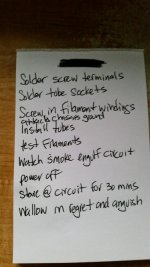 Solder screw terminals
Solder tube sockets
Screw in filament windings
attach chassis ground
Install tubes
test filaments
Watch smoke engulf circuit
power off
stare @ circuit for 30 mins
Wallow in regret and anguish